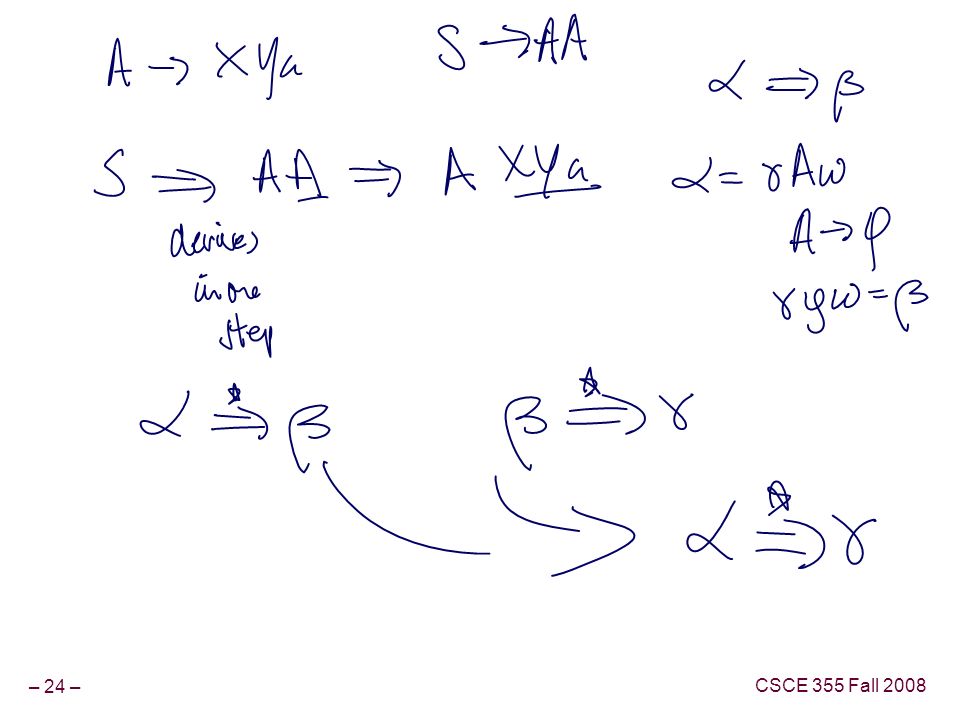 A → XYa
S → AA
α ⇒ β
S ⇒ AA ⇒ A XYa
α = γAω
derives
in one
step
A → φ
γφω = β
α ⇒* β
β ⇒* γ
α ⇒* γ
– 24 –
CSCE 355 Fall 2008